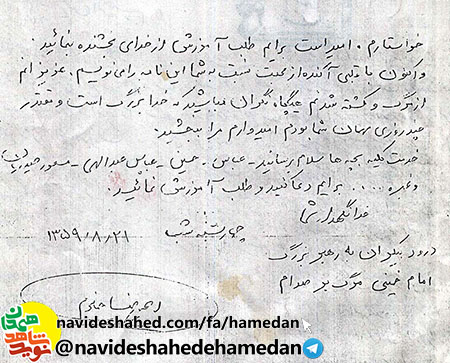 خواستارم . امید است برایم طلب آمرزش از خدای بخشنده نمائید
و اکنون با قلبی آکنده از محبت نسبت به شما این نامه را می نویسم . عزیزانم
از مرگ و کشته شدنم هیچگاه نگران نباشید که خدا بزرگ است و مقدر
چند روزی مهمان شما بودم امیدوارم مرا ببخشید .
خدمت کلیه بچه ها سلام برسانید - عباس - حسین - عباس عبدالهی - مسعود
وغیره ..... برایم دعا کنید و طلب آمرزش نمائید .
خدانگهدار شما
چهارشنبه شب ۱۳۵۹/۸/۲۱
درود بیکران به رهبر بزرگ
امام خمینی مرگ بر صدام
نوید شاهد همدان
navideshahed.com/fa/hamedan
@navideshahedehamedan